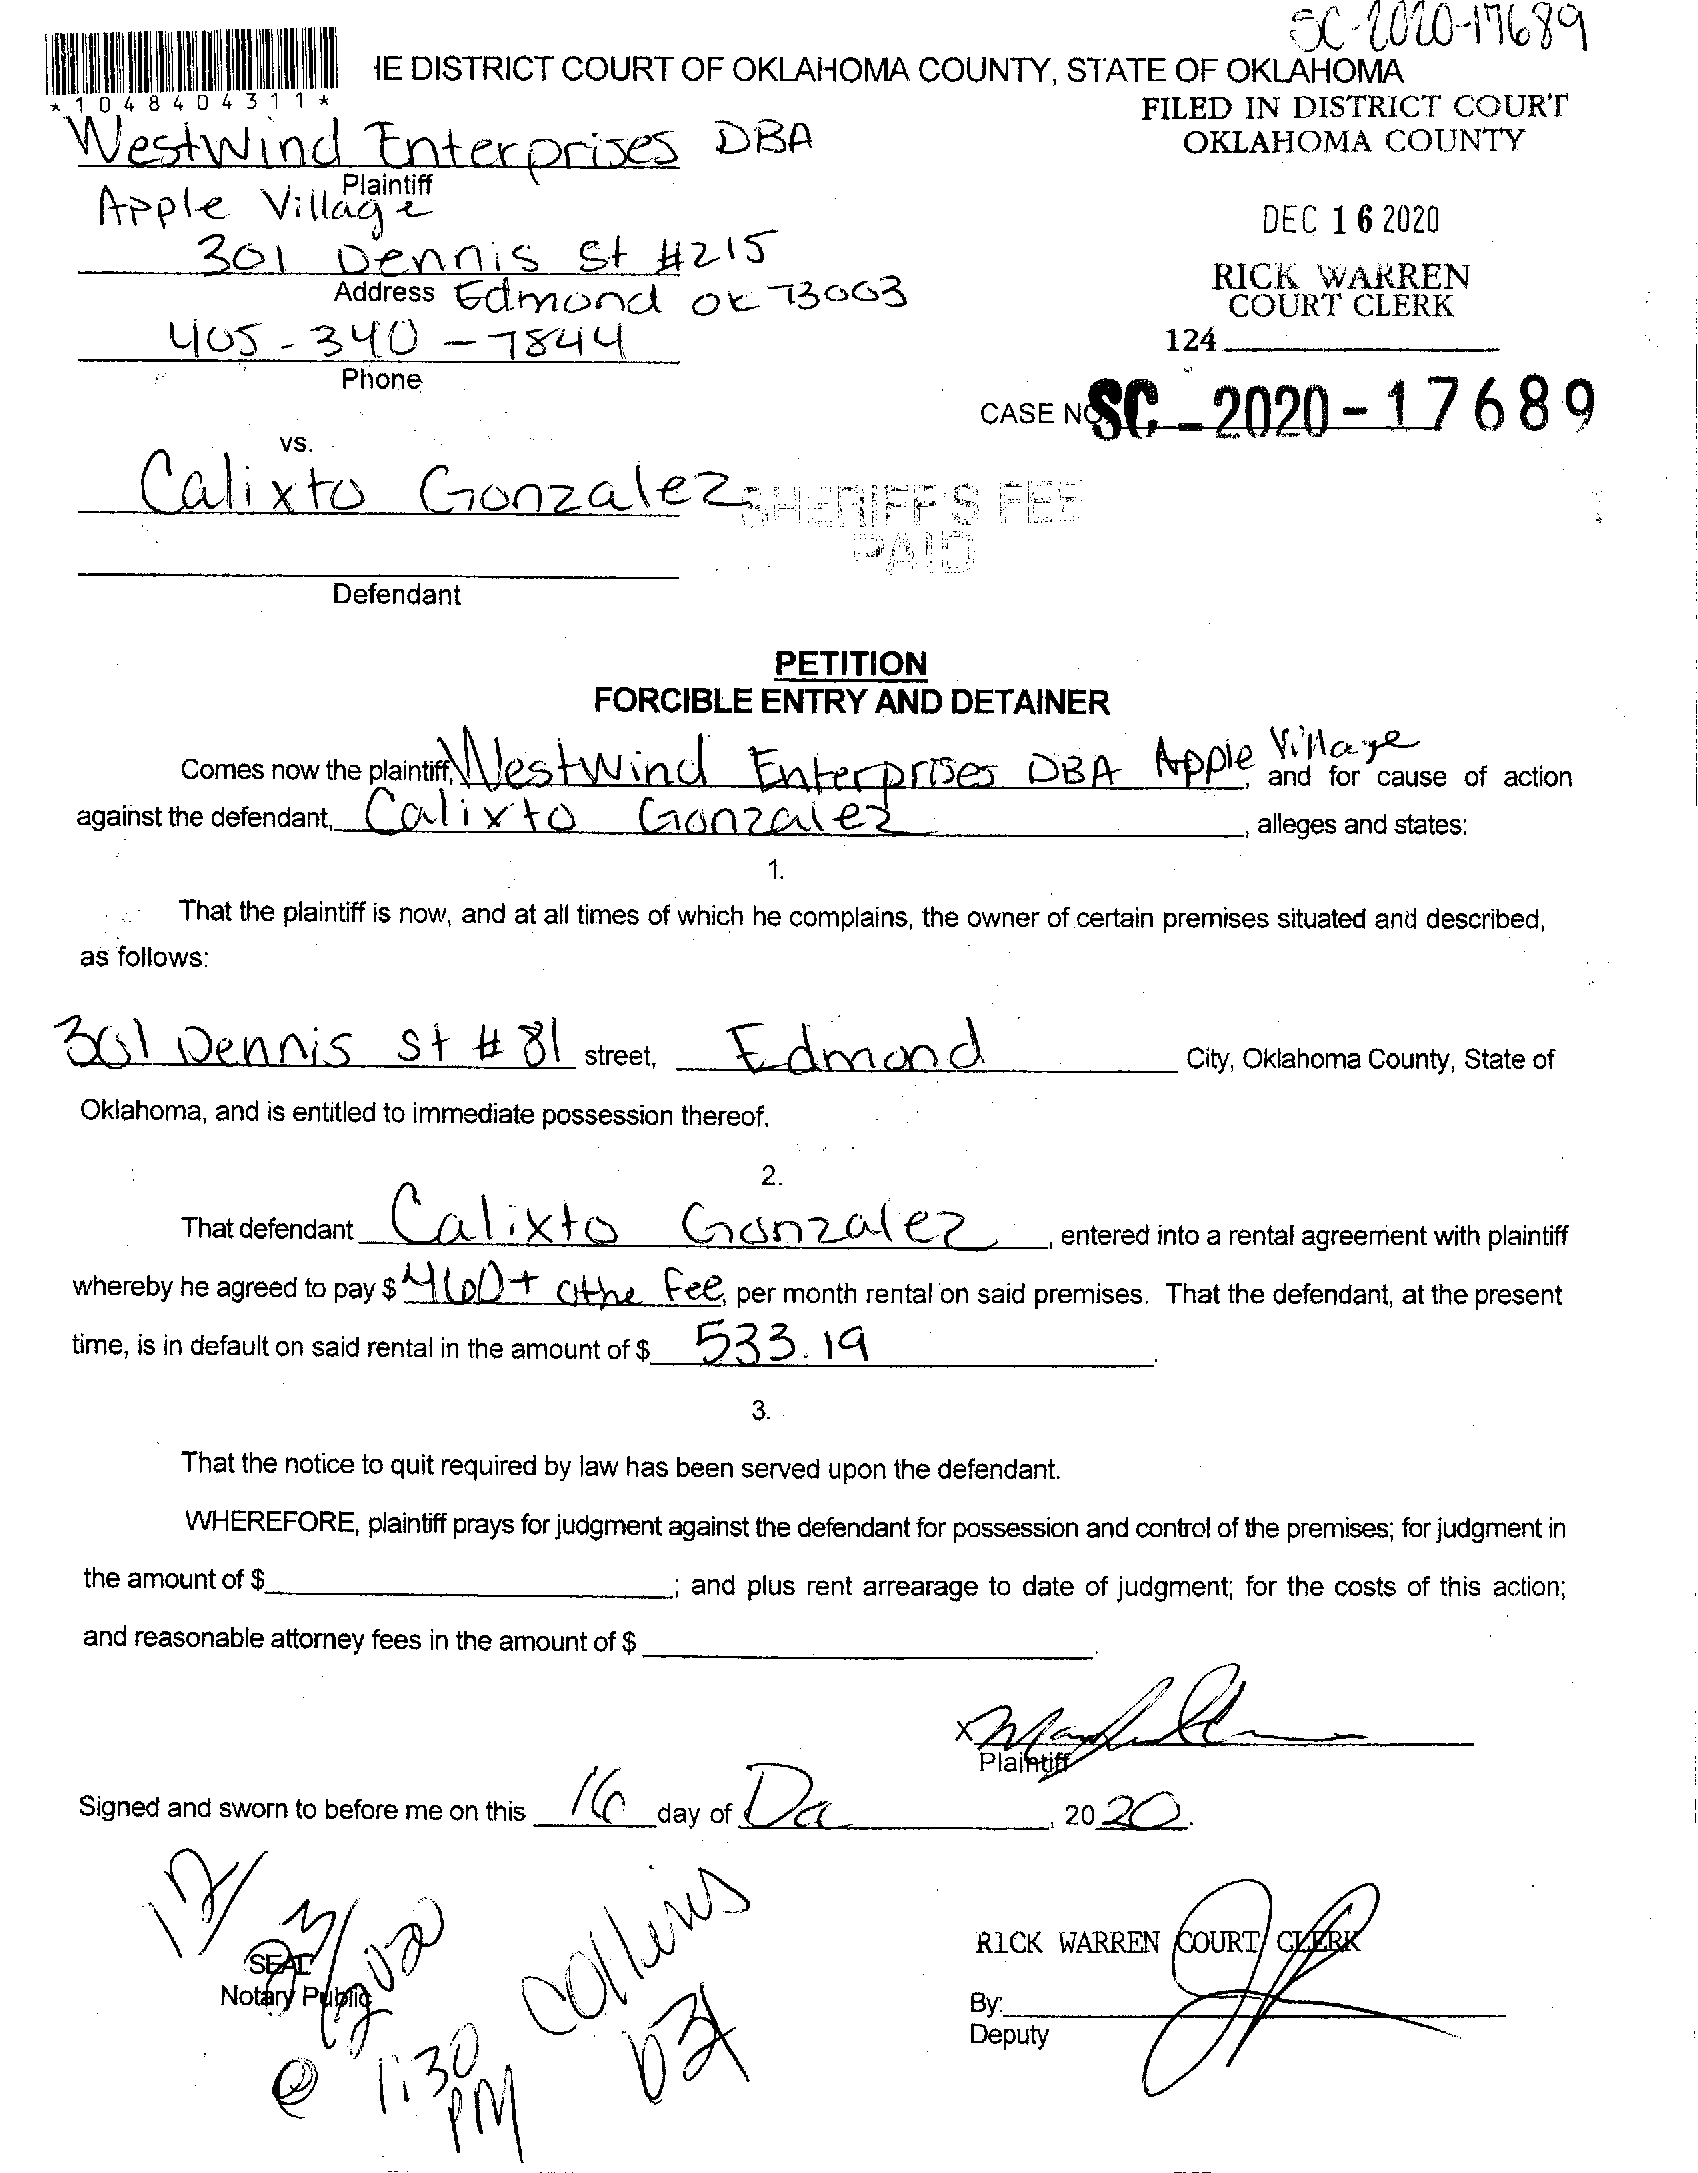 SC-2020-17689
IE DISTRICT COURT OF OKLAHOMA COUNTY, STATE OF OKLAHOMA
*1048404311*
FILED IN DISTRICT COURT
OKLAHOMA COUNTY
Westwind Enterprises DBA
Plaintiff
Apple Village
DEC 16 2020
301 Dennis St #215
RICK WARREN
COURT CLERK
Address Edmond OK 73003
124
405-340-7844
Phone
CASE NO. SC-2020-17689
vs.
Calixto Gonzalez
SHERIFF'S FEE
PAID
Defendant
PETITION
FORCIBLE ENTRY AND DETAINER
Comes now the plaintiff, Westwind Enterprises DBA Apple Village, and for cause of action
against the defendant, Calixto Gonzalez, alleges and states:
1.
That the plaintiff is now, and at all times of which he complains, the owner of certain premises situated and described,
as follows:
301 Dennis St # 81 street, Edmond City, Oklahoma County, State of
Oklahoma, and is entitled to immediate possession thereof.
2.
That defendant Calixto Gonzalez, entered into a rental agreement with plaintiff
whereby he agreed to pay $ 460+ othe Fee, per month rental on said premises. That the defendant, at the present
time, is in default on said rental in the amount of $ 533.19.
3.
That the notice to quit required by law has been served upon the defendant.
WHEREFORE, plaintiff prays for judgment against the defendant for possession and control of the premises; for judgment in
the amount of $ ; and plus rent arrearage to date of judgment; for the costs of this action;
and reasonable attorney fees in the amount of $ .
x
Plaintiff
Signed and sworn to before me on this 16 day of , 2020.
12/23/2020
Collins
SEAL
Notary Public
RICK WARREN COURT CLERK
By:
Deputy
@ 1:30 PM